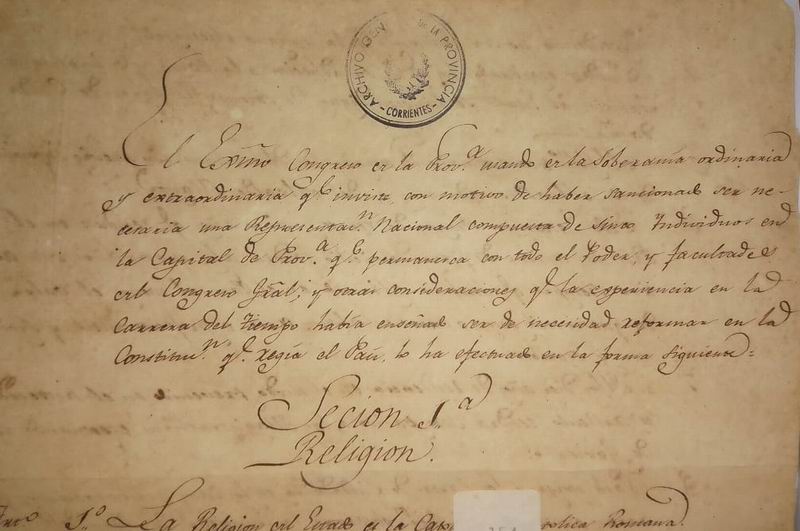 ARCHIVO GEN DE LA PROVINCIA
- CORRIENTES -
El Exmo Congreso en la Prov.ª usando en la Soberanía ordinaria
y extraordinaria q.e inviste, con motivo de haber sancionado ser ne-
cesaria una Representac.n Nacional compuesta de sinco Individuos en
la Capital de Prov.ª q.e permanesca con todo el Poder, y facultades
del Congreso Gral; y otras consideraciones q.e la esperiencia en la
Carrera del Tiempo había enseñado ser de necesidad reformar en la
Constituc.n q.e regía el País, lo ha efectuado en la forma siguiente=
Secion 1.ª
Religion.
Art.o 1.o La Religion del Estado es la Romana